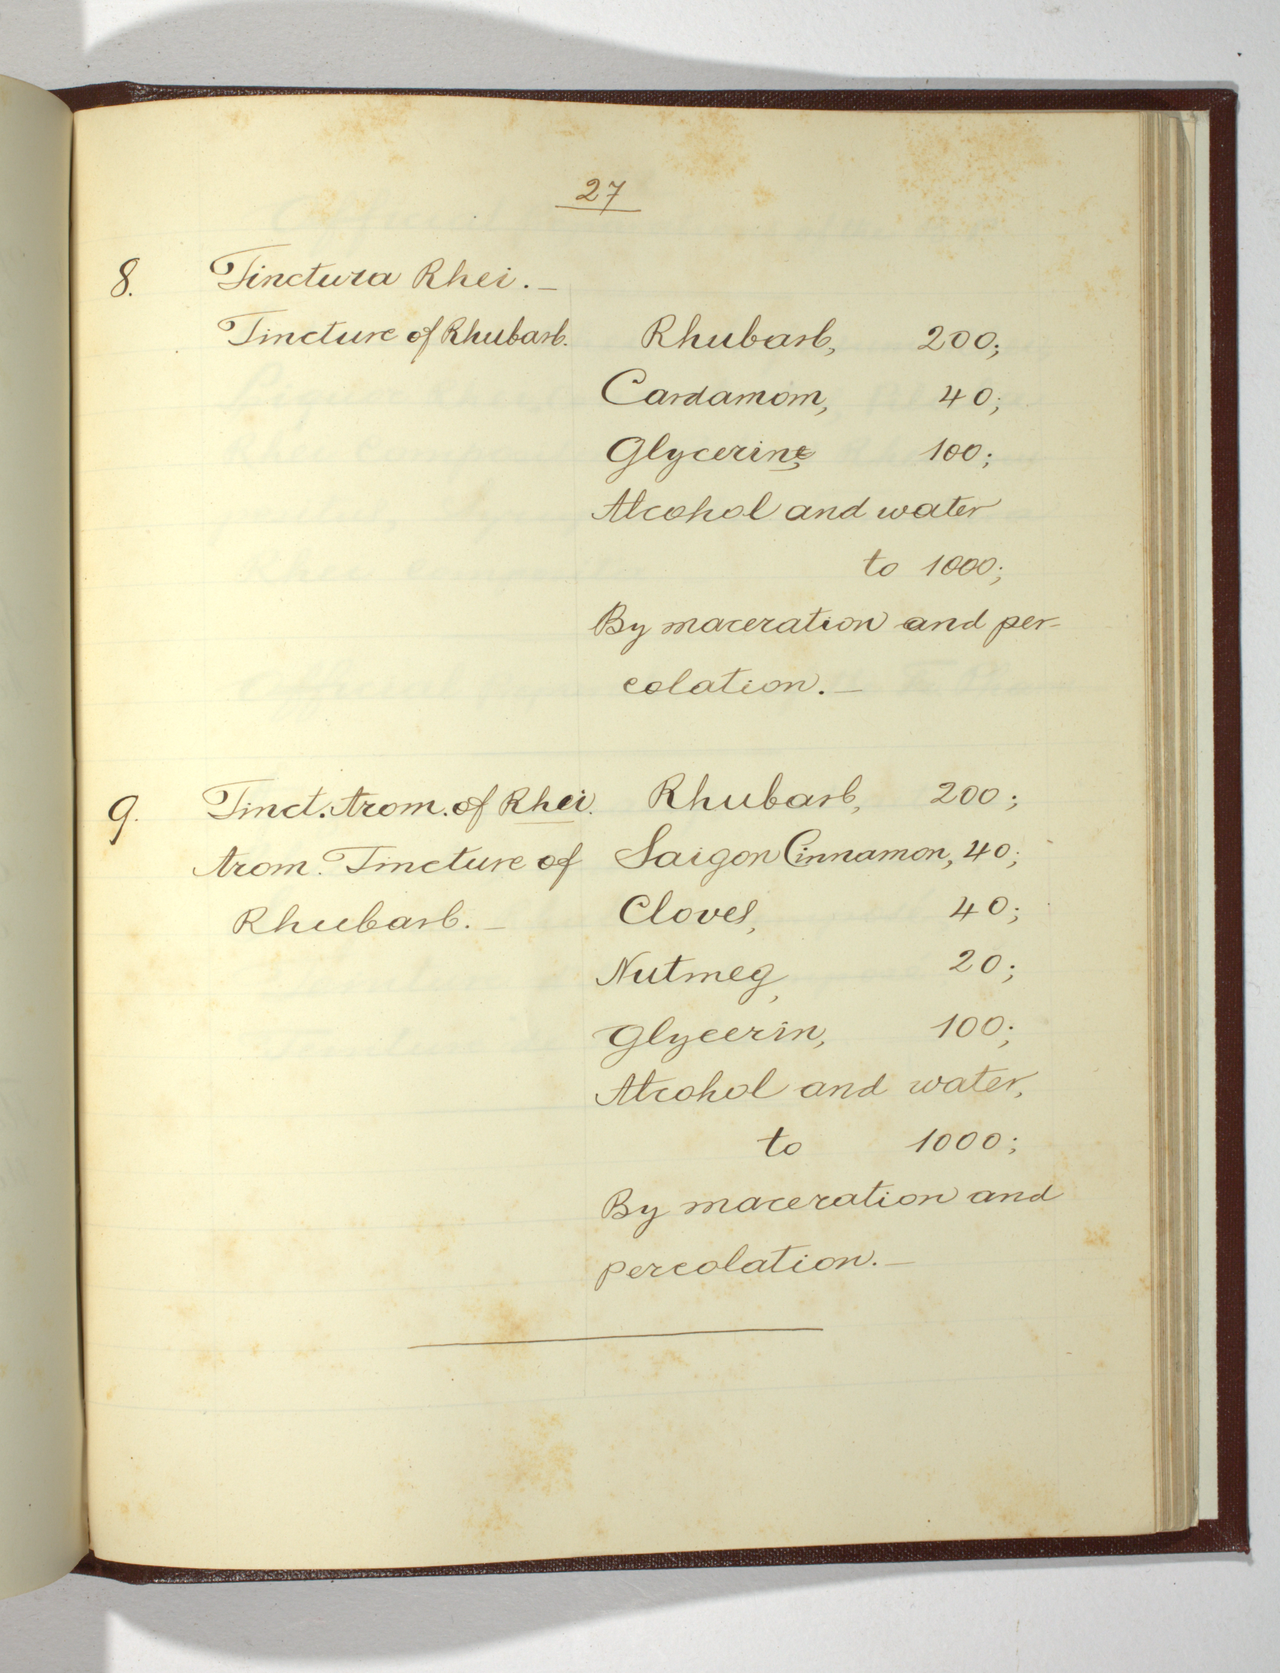 27
8. Tinctura Rhei. –
Tincture of Rhubarb. Rhubarb, 200;
Cardamom, 40;
Glycerine, 100;
Alcohol and water
to 1000;
By maceration and per-
colation. –
9. Tinct. Arom. of Rhei. Rhubarb, 200;
Arom. Tincture of Saigon Cinnamon, 40;
Rhubarb. – Cloves, 40;
Nutmeg, 20;
Glycerin, 100;
Alcohol and water,
to 1000;
By maceration and
percolation. –